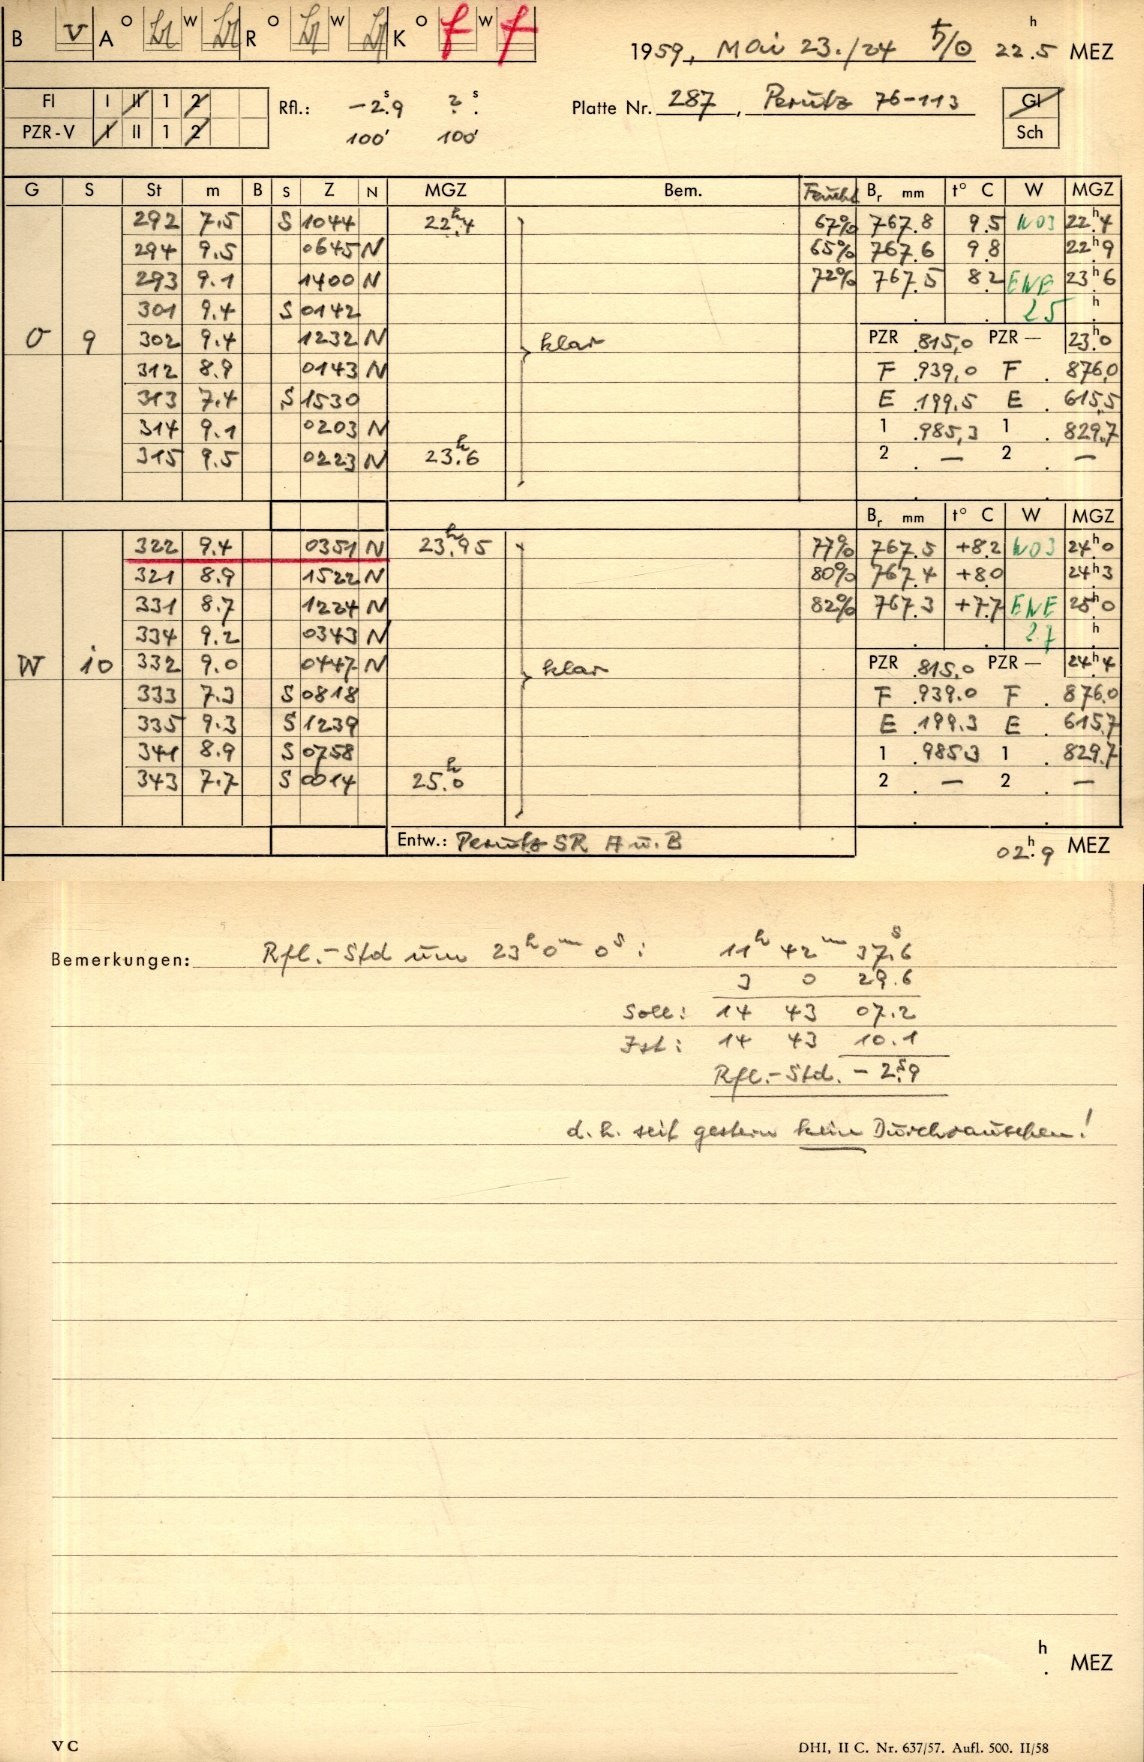 B V A O W R O W K O f W f
1959, Mai 23./24 ♄/☉ 22h.5 MEZ
Fl I II 1 2 Rfl.: -2s.9 ?s. Platte Nr. 287, Perutz 76-113 Gl
PZR-V I II 1 2 100' 100' Sch
G S St m B S Z N MGZ Bem. Feucht Br mm t° C W MGZ
292 7.5 S 1044 22h.4 67% 767.8 9.5 NO3 22h4
294 9.5 0645 N 65% 767.6 9.8 22h9
293 9.1 1400 N 72% 767.5 8.2 ENE 23h6
301 9.4 S 0142 25 h
O 9 302 9.4 1232 N klar PZR 815,0 PZR — 23h.0
312 8.9 0143 N F .939,0 F . 876,0
313 7.4 S 1530 E .199.5 E . 615,5
314 9.1 0203 N 1 .985,3 1 . 829,7
315 9.5 0223 N 23h.6 2 . — 2 . —
Br mm t° C W MGZ
322 9.4 0351 N 23h.95 77% 767.5 +8.2 NO3 24h0
321 8.9 1522 N 80% 767.4 +8.0 24h3
331 8.7 1224 N 82% 767.3 +7.7 ENE 25h0
334 9.2 0343 N 27 h
W 10 332 9.0 0447 N klar PZR 815,0 PZR — 24h4
333 7.3 S 0818 F .939.0 F . 876.0
335 9.3 S 1239 E .199.3 E . 615.7
341 8.9 S 0758 1 .985.3 1 . 829.7
343 7.7 S 0014 25h.0 2 . — 2 . —
Entw.: Perutz SR A u. B
02h.9 MEZ
Bemerkungen: Rfl.-Std um 23h 0m 0s: 11h 42m 37s.6
3 0 29.6
Soll: 14 43 07.2
Ist: 14 43 10.1
Rfl.-Std. - 2s.9
d.h. seit gestern kein Durchrauschen!
h. MEZ
VC DHI, II C. Nr. 637/57. Aufl. 500. II/58